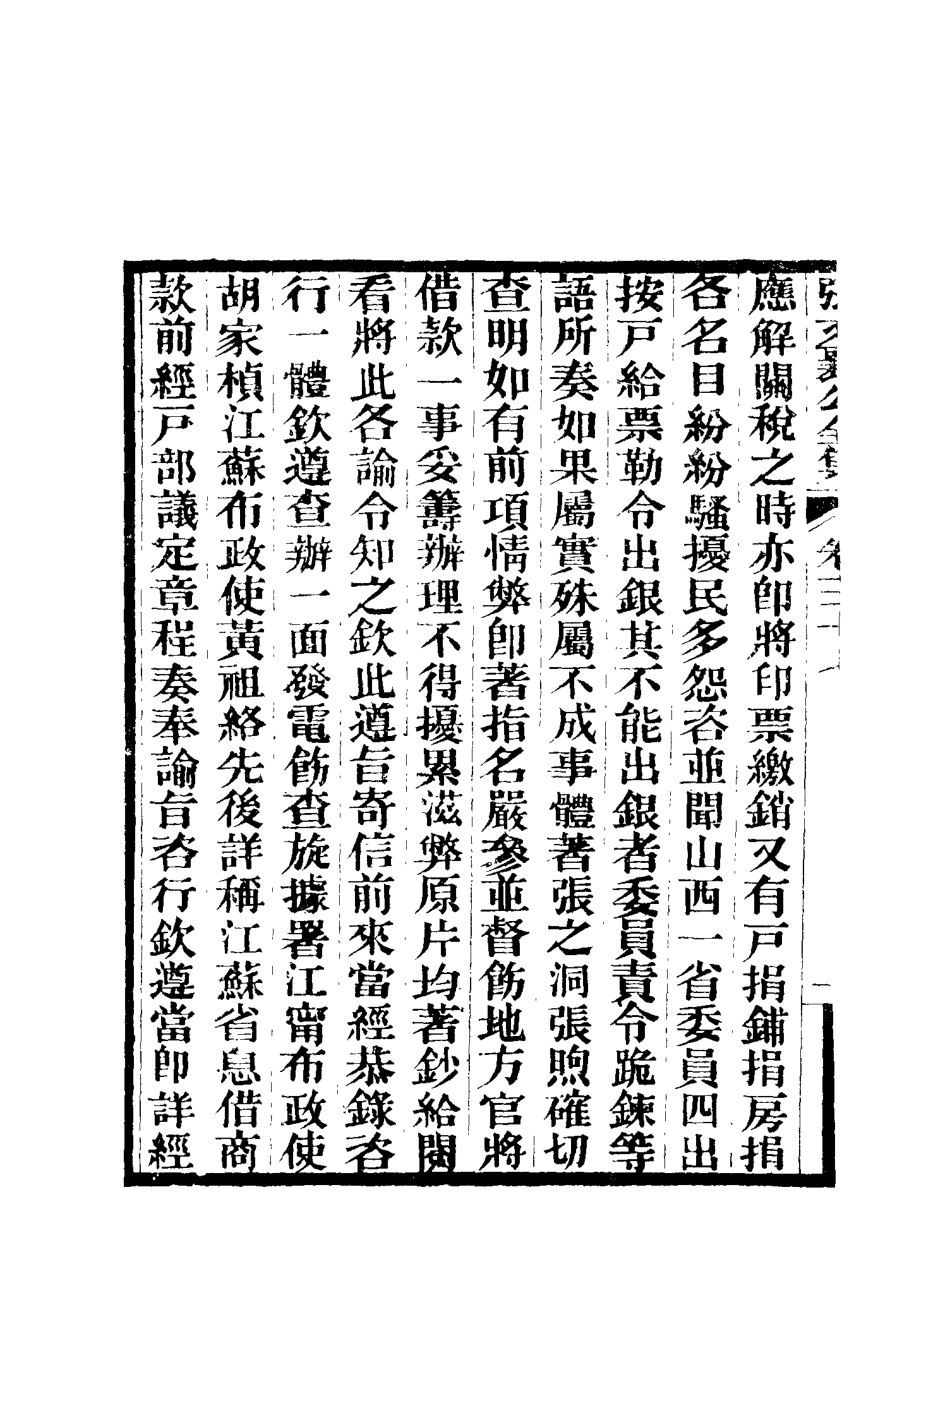 張文襄公全集 卷三十八 一
應解關稅之時亦卽將印票繳銷又有戸捐鋪捐房捐
各名目紛紛騷擾民多怨咨並聞山西一省委員四出
按戸給票勒令出銀其不能出銀者委員責令跪鍊等
語所奏如果屬實殊屬不成事體著張之洞張煦確切
查明如有前項情弊卽著指名嚴參並督飭地方官將
借款一事妥籌辦理不得擾累滋弊原片均著鈔給閱
看將此各諭令知之欽此遵旨寄信前來當經恭錄咨
行一體欽遵查辦一面發電飭查旋據署江甯布政使
胡家楨江蘇布政使黃祖絡先後詳稱江蘇省息借商
款前經戸部議定章程奏奉諭旨咨行欽遵當卽詳經